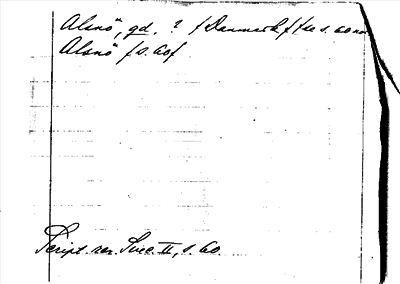 Alsnö, gd. ? (Danmark) (se s. 60 nn
Alsnö (s. 60)
Script. rer. Suec. II, s. 60.